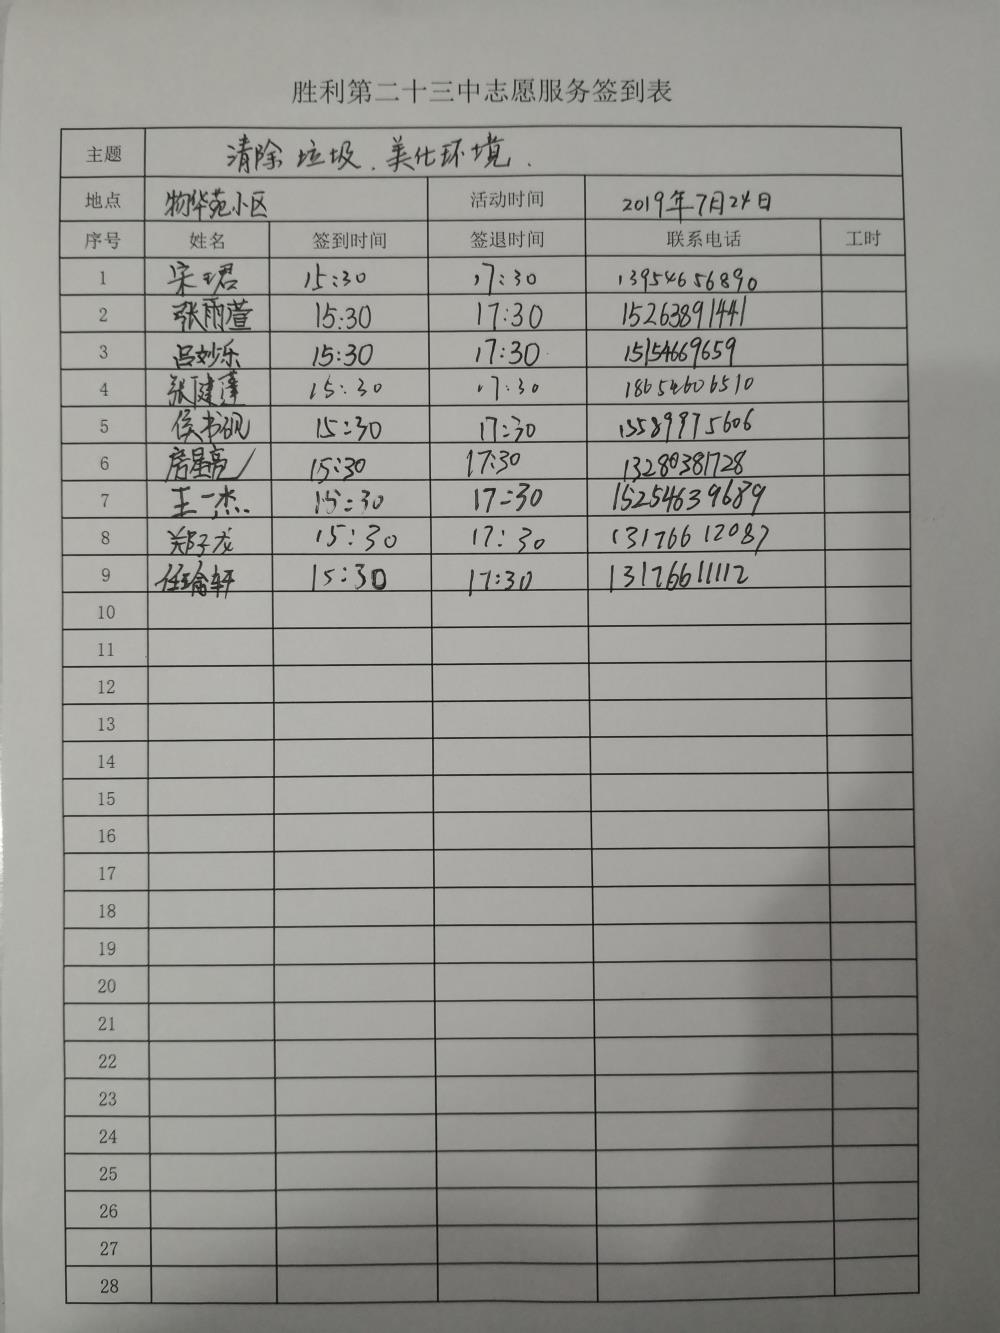 胜利第二十三中志愿服务签到表
主题 清除垃圾、美化环境.
地点 物华苑小区 活动时间 2019年7月24日
序号 姓名 签到时间 签退时间 联系电话 工时
1 宋珺 15:30 17:30 13954656890
2 张雨萱 15:30 17:30 15263891441
3 吕妙乐 15:30 17:30 15154669659
4 张健蓬 15:30 17:30 18654606510
5 侯书砚 15:30 17:30 13589975606
6 房星亮 15:30 17:30 13280381728
7 王一杰 15:30 17:30 15254639689
8 郑子龙 15:30 17:30 13176612087
9 任瑜轩 15:30 17:30 13176611112
10
11
12
13
14
15
16
17
18
19
20
21
22
23
24
25
26
27
28